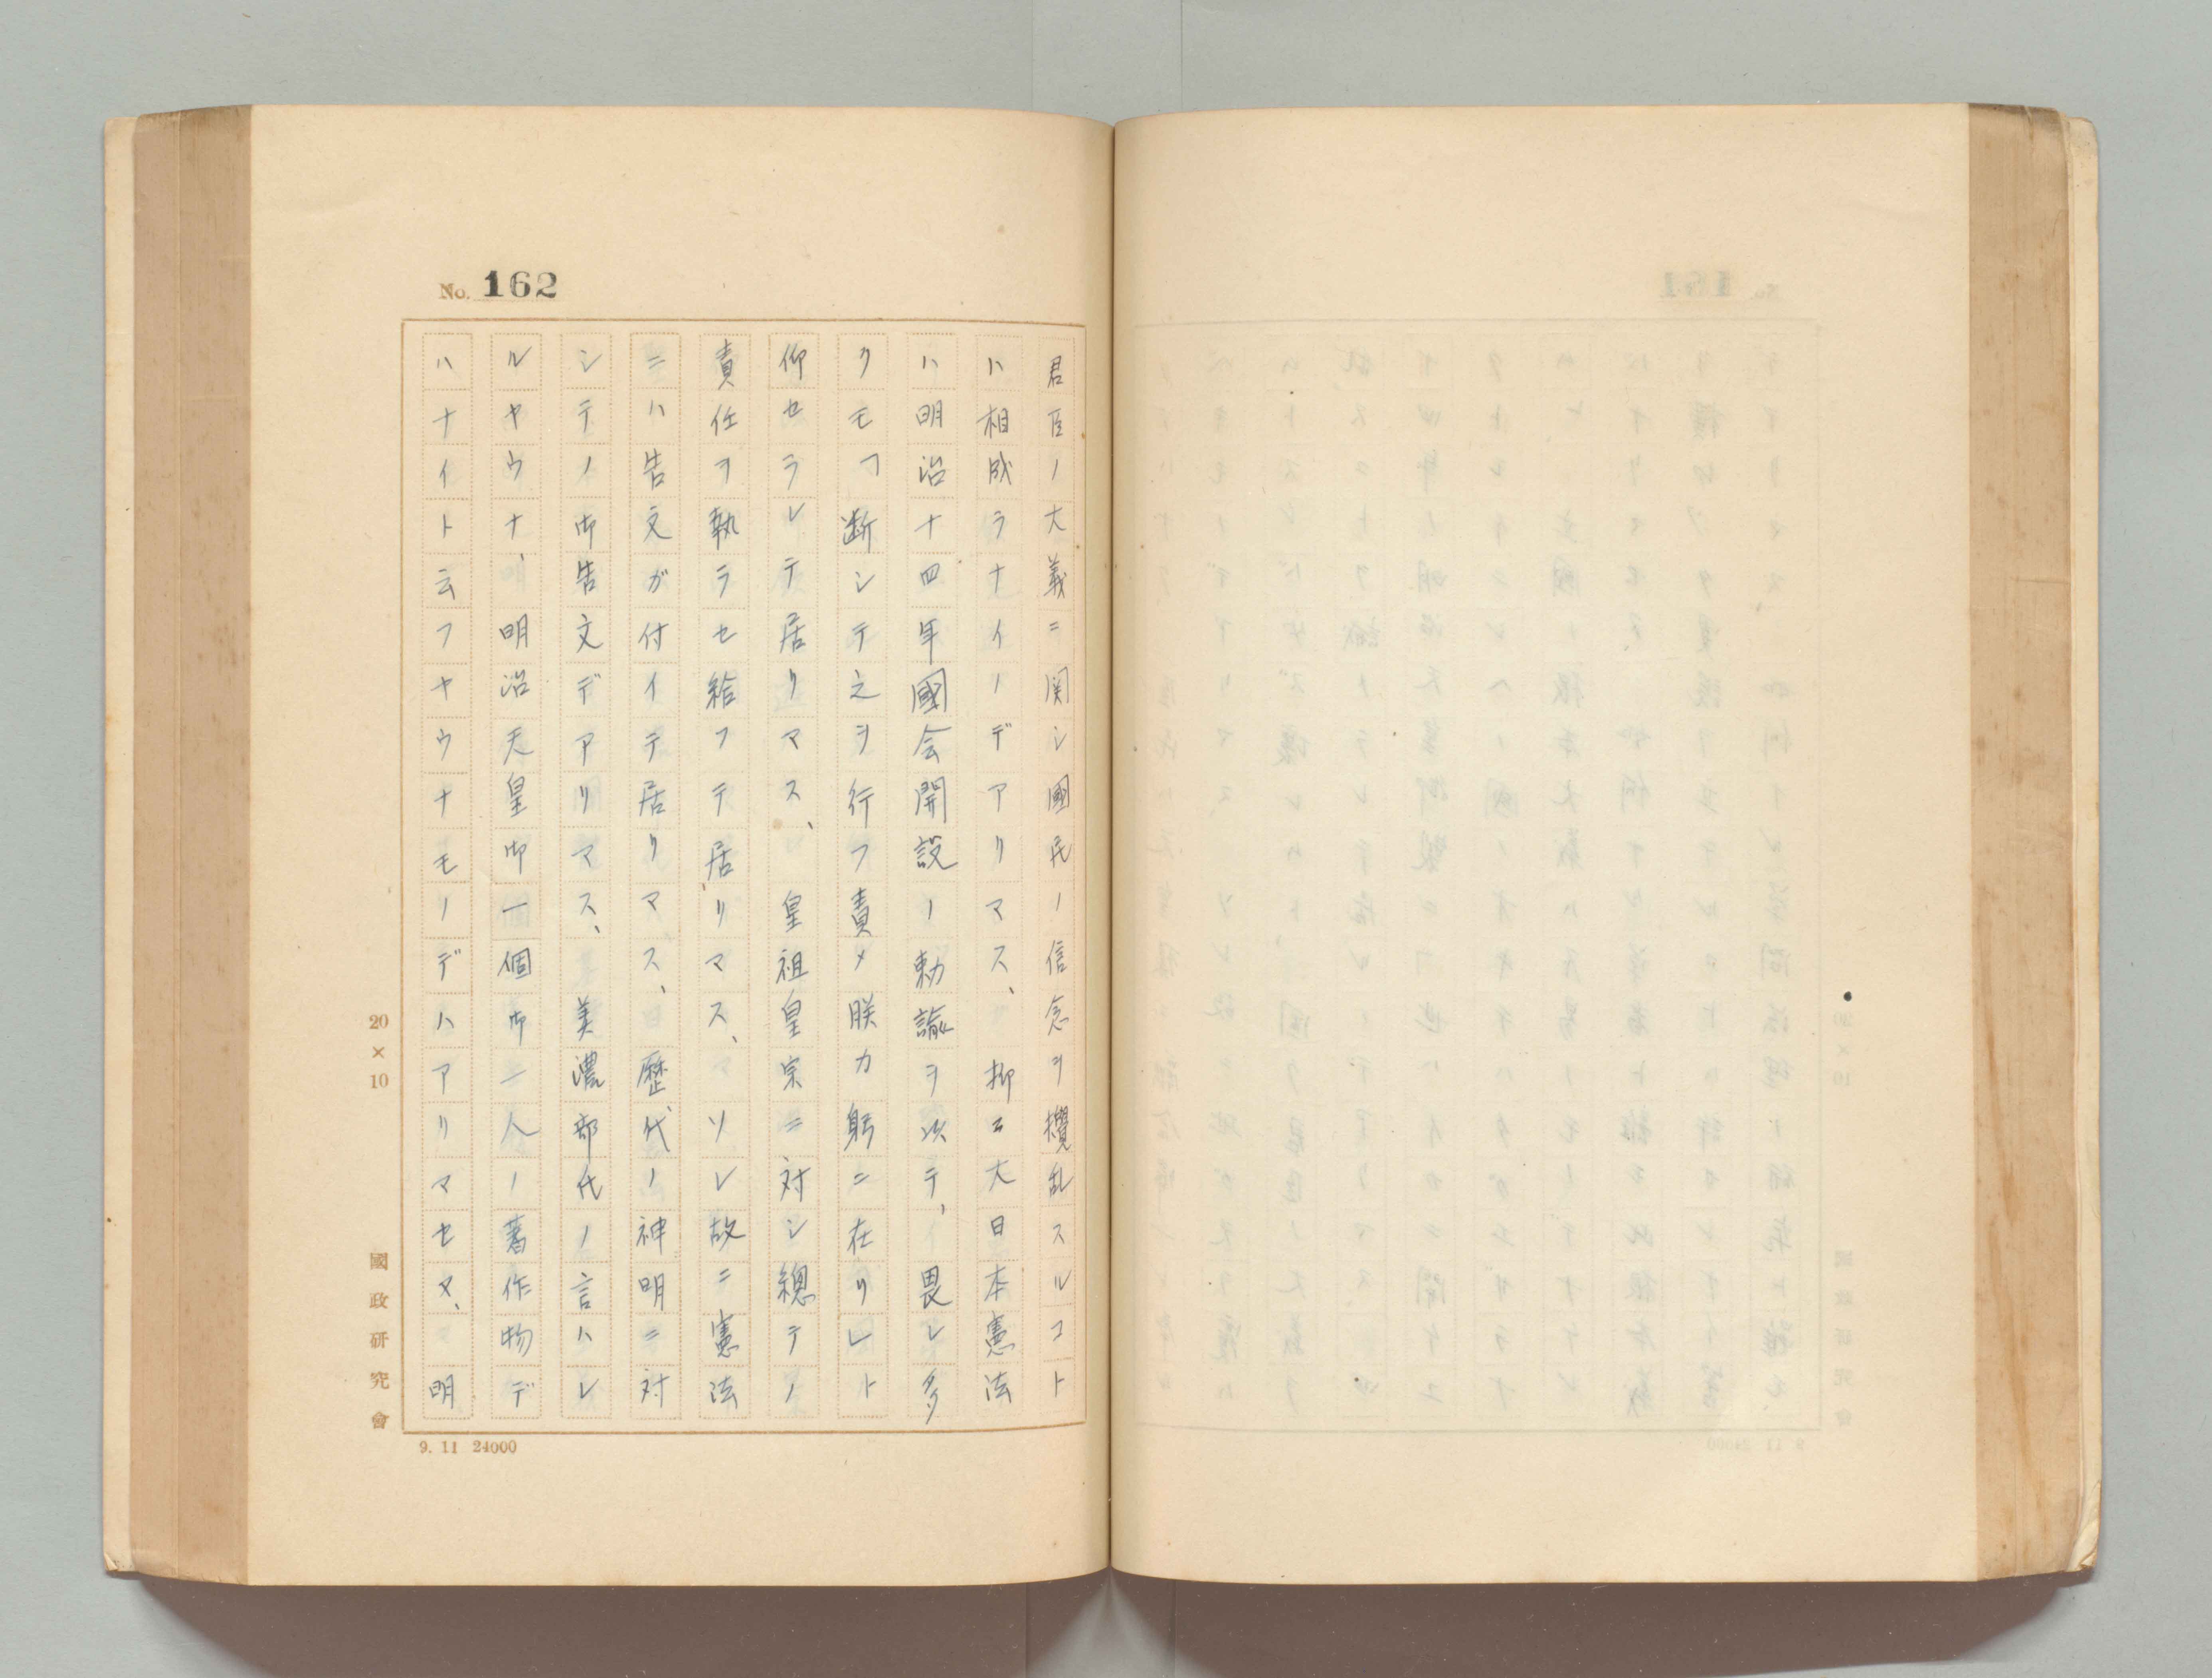 No. 162
君臣ノ大義ニ関シ國民ノ信念ヲ攪乱スルコト
ハ相成ラナイノデアリマス、抑々大日本憲法
ハ明治十四年國会開設ノ勅諭ヲ以テ、畏レ多
クモ「断シテ之ヲ行フ責メ朕カ躬ニ在リ」ト
仰セラレテ居リマス、皇祖皇宗ニ対シ總テノ
責任ヲ執ラセ給フテ居リマス、ソレ故ニ憲法
ニハ告文ガ付イテ居リマス、歴代ノ神明ニ対
シテノ御告文デアリマス、美濃部代ノ言ハレ
ルヤウナ、明治天皇御一個御一人ノ著作物デ
ハナイト云フヤウナモノデハアリマセヌ、明
20×10
國政研究會
9. 11 24000